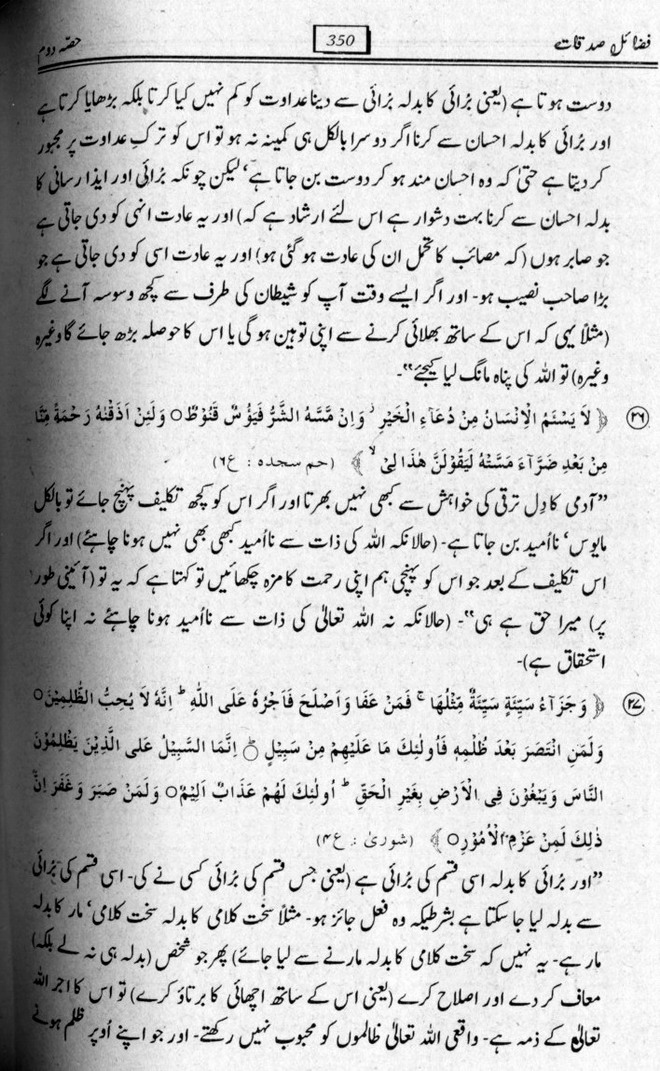 فضائل صدقات 350 حصّہ دوم
دوست ہوتا ہے (یعنی بُرائی کا بدلہ بُرائی سے دینا عداوت کو کم نہیں کیا کرتا بلکہ بڑھایا کرتا ہے
اور بُرائی کا بدلہ احسان سے کرنا اگر دوسرا بالکل ہی کمینہ نہ ہو تو اس کو ترکِ عداوت پر مجبور
کر دیتا ہے حتیٰ کہ وہ احسان مند ہو کر دوست بن جاتا ہے‘ لیکن چونکہ بُرائی اور ایذا رسانی کا
بدلہ احسان سے کرنا بہت دشوار ہے اس لئے ارشاد ہے کہ) اور یہ عادت انہی کو دی جاتی ہے
جو صابر ہوں (کہ مصائب کا تحمّل ان کی عادت ہو گئی ہو) اور یہ عادت اسی کو دی جاتی ہے جو
بڑا صاحب نصیب ہو۔ اور اگر ایسے وقت آپ کو شیطان کی طرف سے کچھ وسوسہ آنے لگے
(مثلاً یہی کہ اس کے ساتھ بھلائی کرنے سے اپنی توہین ہوگی یا اس کا حوصلہ بڑھ جائے گا وغیرہ
وغیرہ) تو اللہ کی پناہ مانگ لیا کیجئے‘‘۔
۲۶ ﴿ لَا يَسْئَمُ الْاِنْسَانُ مِنْ دُعَآءِ الْخَيْرِ ز وَاِنْ مَّسَّهُ الشَّرُّ فَيَئُوْسٌ قَنُوْطٌ ○ وَلَئِنْ اَذَقْنٰهُ رَحْمَةً مِّنَّا
مِنْ بَعْدِ ضَرَّآءَ مَسَّتْهُ لَيَقُوْلَنَّ هٰذَا لِيْ لا ﴾ (حم سجدہ : ع۶)
’’آدمی کا دِل ترقی کی خواہش سے کبھی نہیں بھرتا اور اگر اس کو کچھ تکلیف پہنچ جائے تو بالکل
مایوس‘ نااُمید بن جاتا ہے۔ (حالانکہ اللہ کی ذات سے نااُمید کبھی بھی نہیں ہونا چاہئے) اور اگر
اس تکلیف کے بعد جو اس کو پہنچی ہم اپنی رحمت کا مزہ چکھائیں تو کہتا ہے کہ یہ تو (آئینی طور
پر) میرا حق ہے ہی‘‘۔ (حالانکہ نہ اللہ تعالیٰ کی ذات سے نااُمید ہونا چاہئے نہ اپنا کوئی
استحقاق ہے)۔
۲۷ ﴿ وَجَزَآءُ سَيِّئَةٍ سَيِّئَةٌ مِّثْلُهَا ج فَمَنْ عَفَا وَاَصْلَحَ فَاَجْرُهٗ عَلَى اللّٰهِ ط اِنَّهٗ لَا يُحِبُّ الظّٰلِمِيْنَ ○
وَلَمَنِ انْتَصَرَ بَعْدَ ظُلْمِهٖ فَاُولٰٓئِكَ مَا عَلَيْهِمْ مِنْ سَبِيْلٍ ○ط اِنَّمَا السَّبِيْلُ عَلَى الَّذِيْنَ يَظْلِمُوْنَ
النَّاسَ وَيَبْغُوْنَ فِى الْاَرْضِ بِغَيْرِ الْحَقِّ ط اُولٰٓئِكَ لَهُمْ عَذَابٌ اَلِيْمٌ ○ وَلَمَنْ صَبَرَ وَغَفَرَ اِنَّ
ذٰلِكَ لَمِنْ عَزْمِ الْاُمُوْرِ ○ ﴾ (شوریٰ : ع۴)
’’اور بُرائی کا بدلہ اسی قسم کی بُرائی ہے (یعنی جس قسم کی بُرائی کسی نے کی۔ اسی قسم کی بُرائی
سے بدلہ لیا جا سکتا ہے بشرطیکہ وہ فعل جائز ہو۔ مثلاً سخت کلامی کا بدلہ سخت کلامی‘ مار کا بدلہ
مار ہے۔ یہ نہیں کہ سخت کلامی کا بدلہ مارنے سے لیا جائے) پھر جو شخص (بدلہ ہی نہ لے بلکہ)
معاف کر دے اور اصلاح کرے (یعنی اس کے ساتھ اچھائی کا برتاؤ کرے) تو اس کا اجر اللہ
تعالیٰ کے ذمہ ہے۔ واقعی اللہ تعالیٰ ظالموں کو محبوب نہیں رکھتے۔ اور جو اپنے اُوپر ظلم ہونے